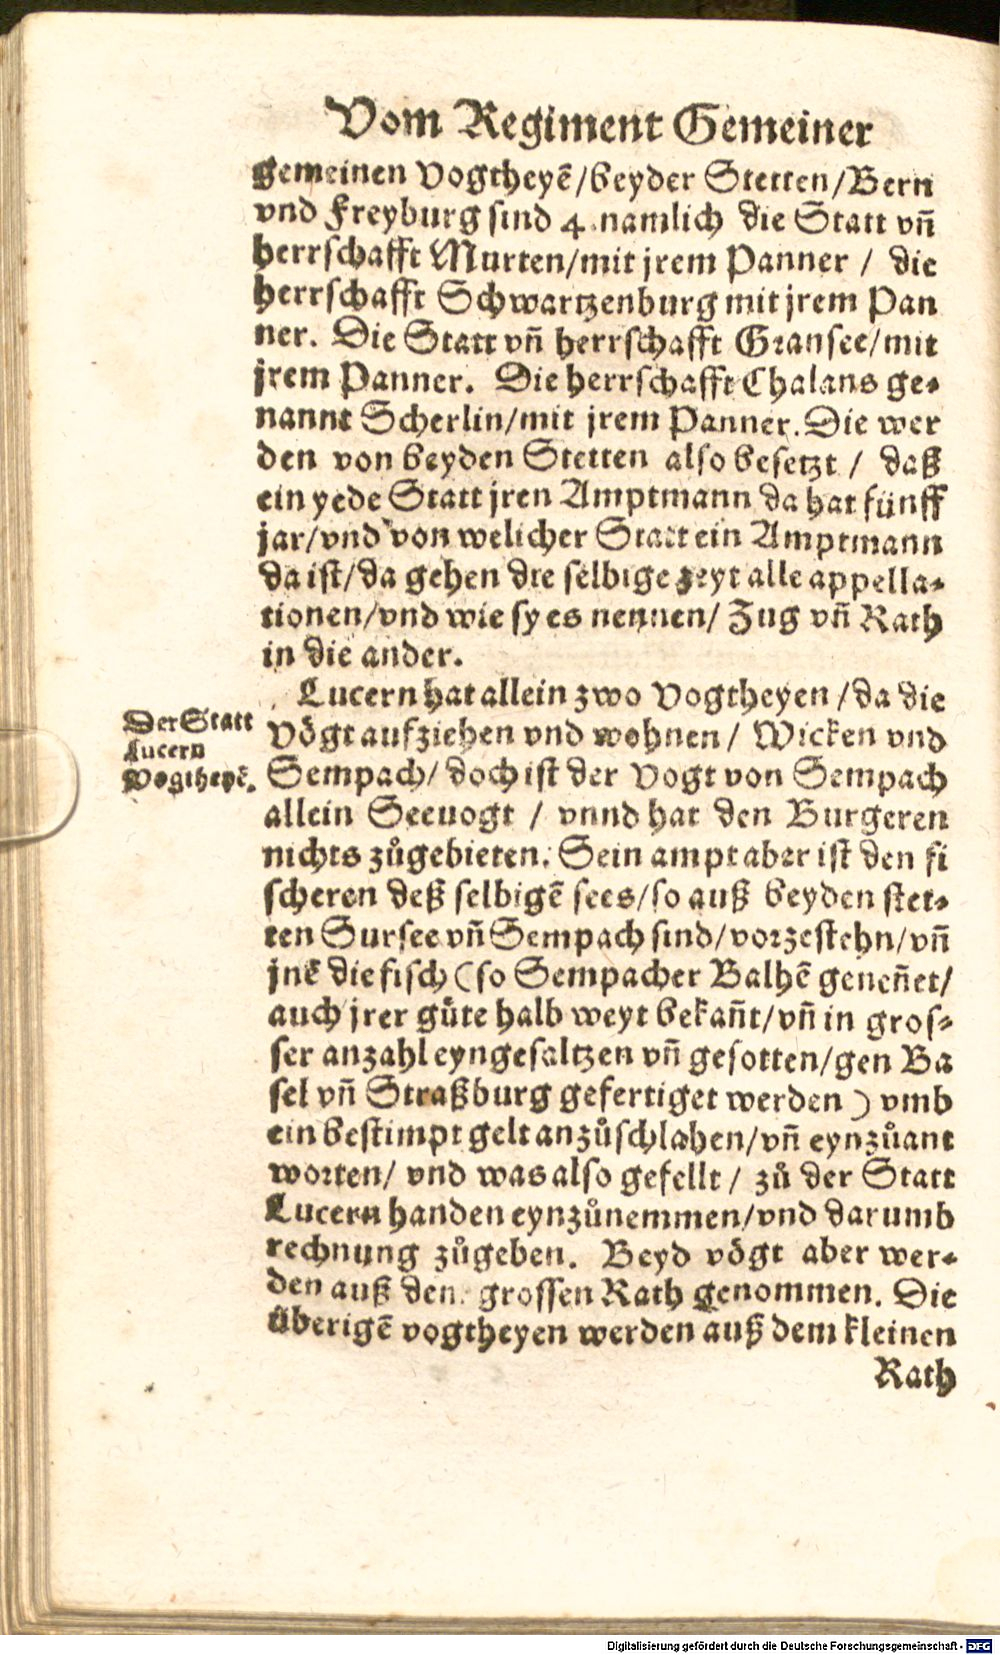 Vom Regiment Gemeiner
gemeinen Vogtheyẽ/beyder Stetten/Bern
vnd Freyburg sind 4. namlich die Statt vñ
herrschafft Murten/mit jrem Panner / die
herrschafft Schwartzenburg mit jrem Pan
ner. Die Statt vñ herrschafft Gransee/mit
jrem Panner. Die herrschafft Chalans ge⸗
nannt Scherlin/mit jrem Panner. Die wer
den von beyden Stetten also besetzt / daß
ein yede Statt jren Amptmann da hat fünff
jar/vnd von welicher Statt ein Amptmann
da ist/da gehen die selbige zeyt alle appella⸗
tionen/vnd wie sy es nennen/ Zug vñ Rath
in die ander.
Lucern hat allein zwo Vogtheyen /da die
Der Statt
Lucern
Vogtheyẽ.
Vögt aufziehen vnd wohnen/ Wicken vnd
Sempach/ doch ist der Vogt von Sempach
allein Seeuogt / vnnd hat den Burgeren
nichts zůgebieten. Sein ampt aber ist den fi
scheren deß selbigẽ sees/so auß beyden stet⸗
ten Sursee vñ Sempach sind/vorzestehn/vñ
jnẽ die fisch (so Sempacher Balhẽ geneñet/
auch jrer güte halb weyt bekañt/vñ in gros⸗
ser anzahl eyngesaltzen vñ gesotten/gen Ba
sel vñ Straßburg gefertiget werden) vmb
ein bestimpt gelt anzůschlahen/vñ eynzůant
worten/ vnd was also gefellt / zů der Statt
Lucern handen eynzůnemmen/vnd darumb
rechnung zůgeben. Beyd vögt aber wer⸗
den auß dem grossen Rath genommen. Die
überigẽ vogtheyen werden auß dem kleinen
Rath
Digitalisierung gefördert durch die Deutsche Forschungsgemeinschaft - DFG